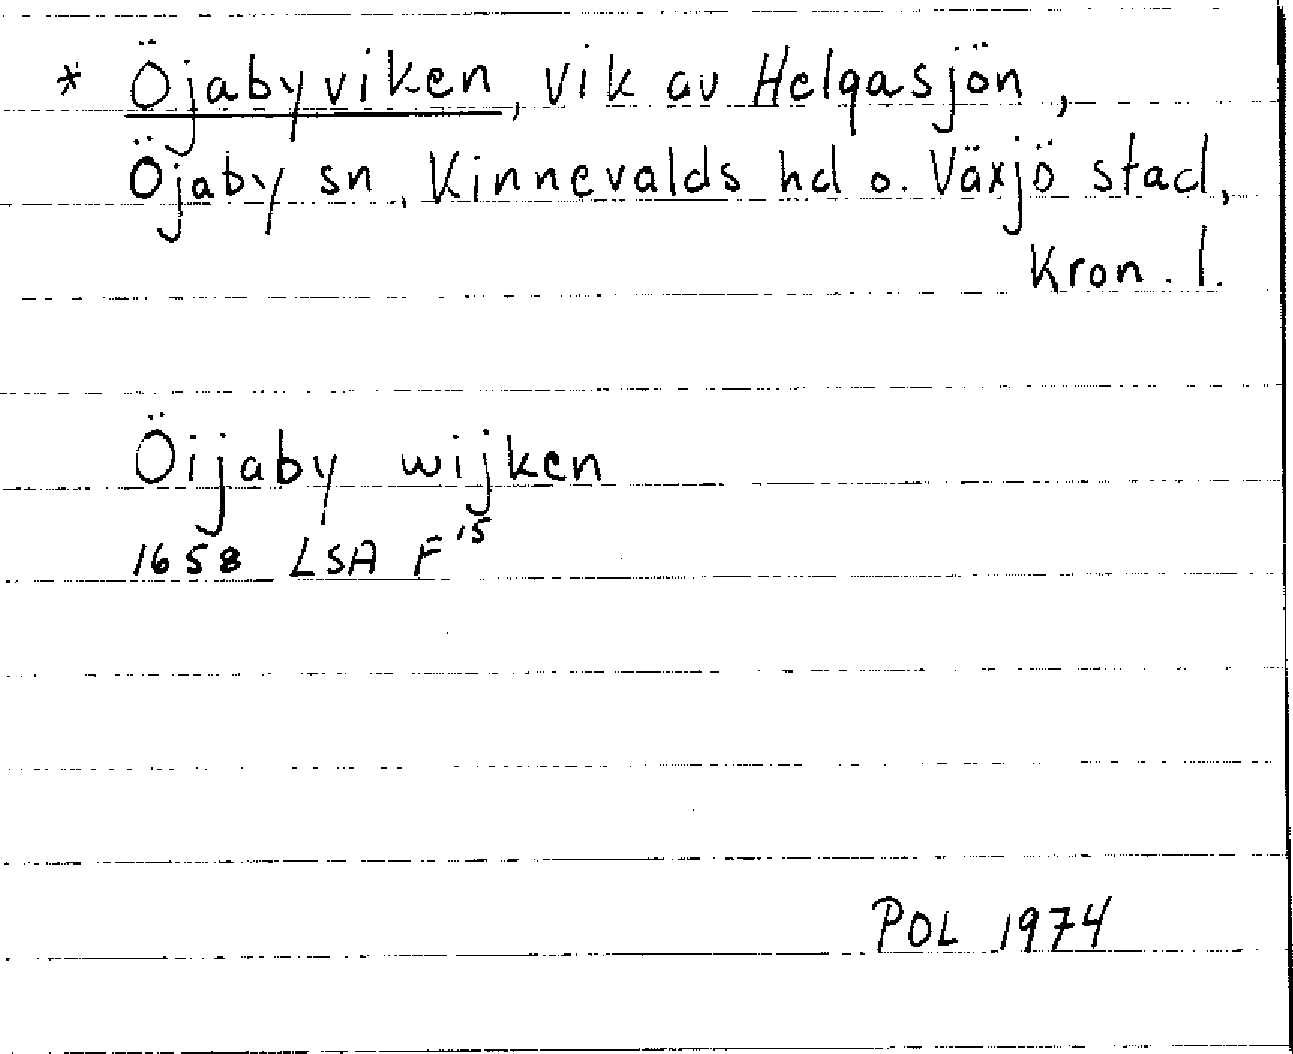 * Öjabyviken, vik av Helgasjön,
Öjaby sn, Kinnevalds hd o. Växjö stad,
Kron. l.
Öijaby wijken
1658 LSA F¹⁵
POL 1974